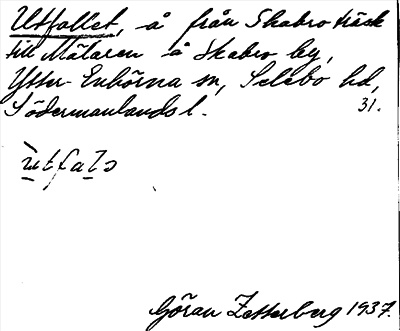 Utfallet, å från Skabroträsk
till Mälaren å Skabro by,
Ytter-Enhörna sn, Selebo hd,
Södermanlands l. 31.
ùtfals
Göran Zetterberg 1937.